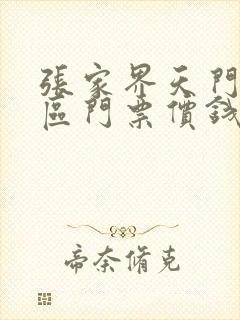 張家界天門
區門票價錢
帝奈脩克